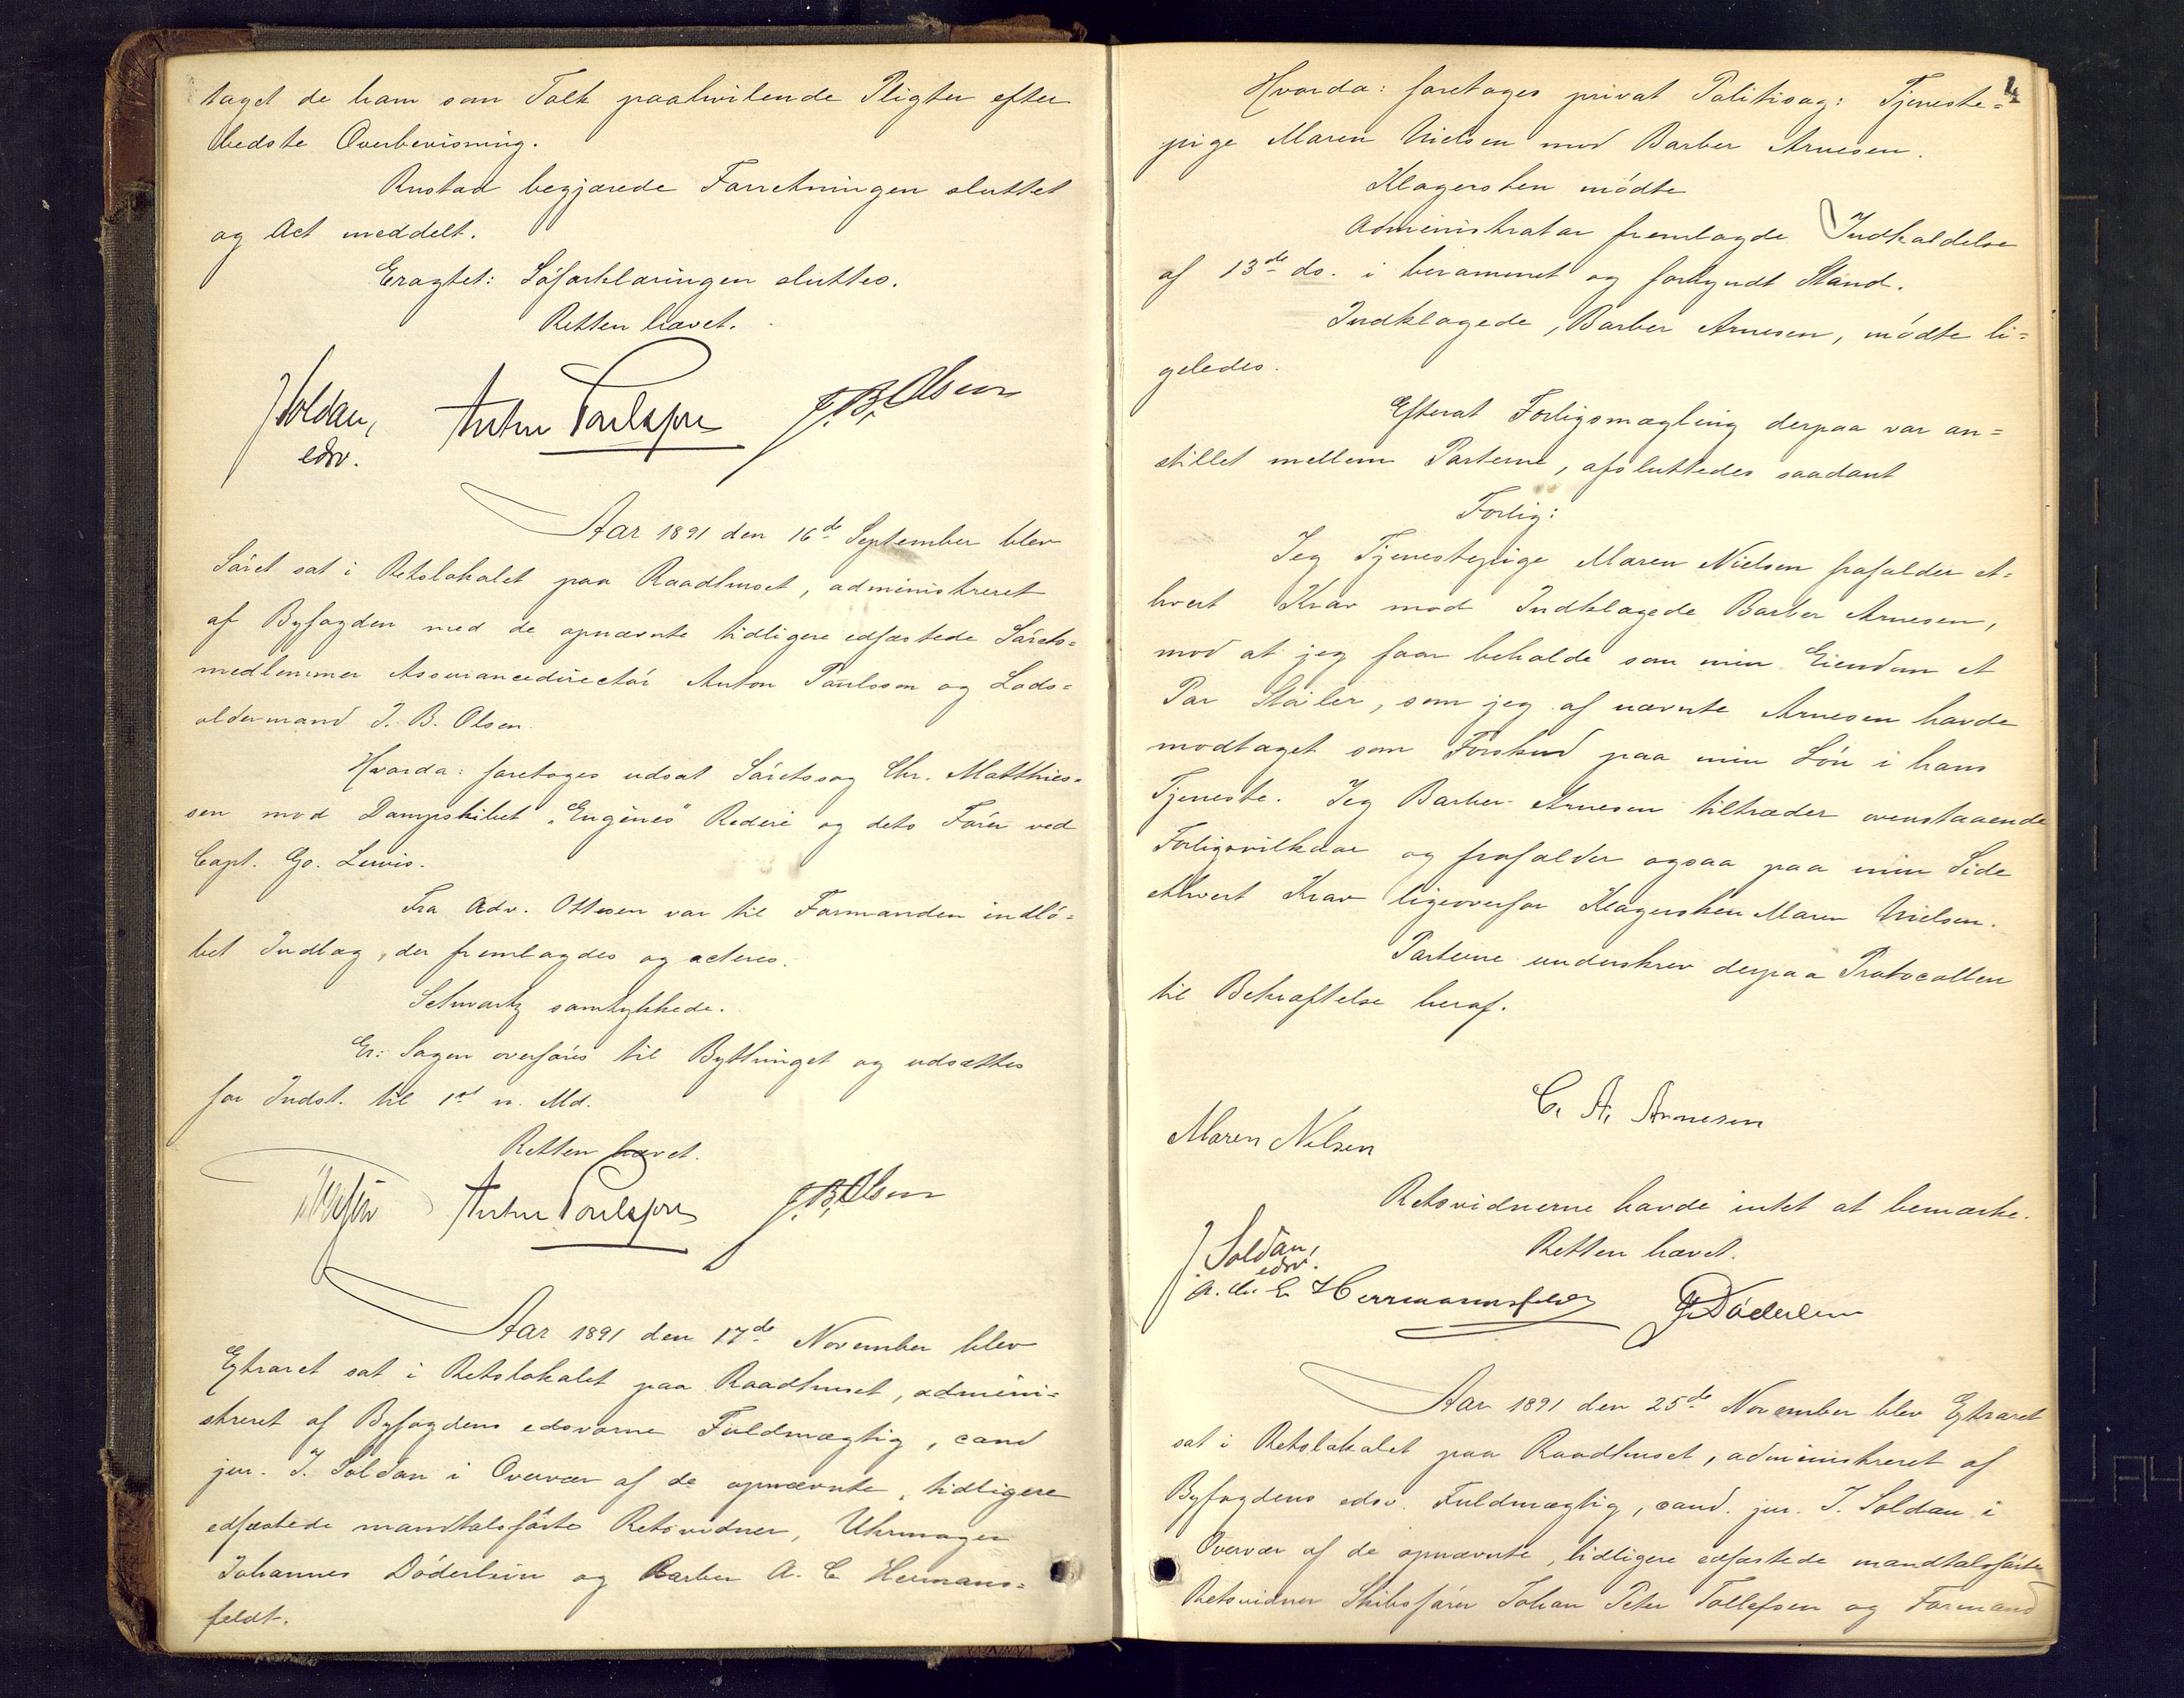 taget de ham som Tolk paahvilende Pligter efter
bedste Overbevisning.
Rustad begjærede Forretningen sluttet
og Act meddelt.
Eragtet: Søforklaringen sluttes.
Retten hævet.
J Soldan, Anton Poulsson J. B. Olsen
edsv.
Aar 1891 den 16de September blev
Søret sat i Retslokalet paa Raadhuset, administreret
af Byfogden med de opnævnte tidligere edfæstede Sørets=
medlemmer Assurancedirectør Anton Poulsson og Lods=
oldermand J. B. Olsen.
Hvorda: foretoges udsat Søretssag Chr. Matthies=
sen mod Dampskibet "Engines" Rederi og dets Fører ved
Capt. Go. Lewis.
Fra Adv. Ottesen var til Formanden indlø=
bet Indlæg, der fremlagdes og acteres.
Schwartz samtykkede.
Er: Sagen overføres til Bythinget og udsættes
for Indst. til 1st n. Md.
Retten hævet.
Anton Poulsson J. B. Olsen
Aar 1891 den 17de November blev
Extraret sat i Retslokalet paa Raadhuset, admini=
streret af Byfogdens edsvorne Fuldmægtig, cand
jur. J. Soldan i Overvær af de opnævnte, tidligere
edfæstede mandtalsførte Retsvidner, Uhrmager
Johannes Døderlein og Barber A. C Hermans=
feldt.
4
Hvorda: foretoges privat Politisag: Tjeneste=
pige Maren Nielsen mod Barber Arnesen.
Klagersken mødte
Administrator fremlagde Indkaldelse
af 13de ds. i berammet og forkyndt Stand.
Indklagede, Barber Arnesen, mødte li=
geledes.
Efterat Forligsmægling derpaa var an=
stillet mellem Parterne, afsluttedes saadant
Forlig:
Jeg Tjenestepige Maren Nielsen frafalder et=
hvert Krav mod Indklagede Barber Arnesen,
mod at jeg faar beholde som min Eiendom et
Par Støvler, som jeg af nævnte Arnesen havde
modtaget som Forskud paa min Løn i hans
Tjeneste. Jeg Barber Arnesen tiltræder ovenstaaende
Forligsvilkaar og frafalder ogsaa paa min Side
ethvert Krav ligeoverfor Klagersken Maren Nielsen.
Parterne underskrev derpaa Protocollen
til Bekræftelse heraf.
C. A. Arnesen
Maren Nilsen
Retsvidnerne havde intet at bemærke.
Retten hævet.
J. Soldan,
edsv.
A. Chr. E Herrmannsfeldt J. Døderlein
Aar 1891 den 25de November blev Extraret
sat i Retslokalet paa Raadhuset, administreret af
Byfogdens edsv. Fuldmægtig, cand. jur. J. Soldan i
Overvær af de opnævnte, tidligere edfæstede mandtalsførte
Retsvidner Skibsfører Johan Peter Tollefsen og Formand